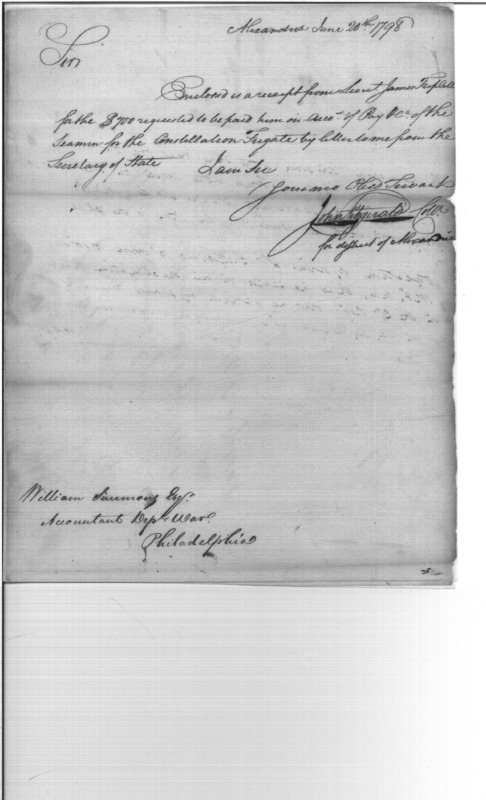 Alexandria June 20th. 1798
Sir
Enclosed is a receipt from Lieut James Triplett
for the $700 requested to be paid him on Acco't of Pay &Ca. of the
Seamen for the Constellation Frigate by letter to me from the
Secretary of State I am Sir
Your mo Obed Servant
John Fitzgerald Collr.
for district of Alexandria
William Simmons Esqr.
Accountant Dept. War.
Philadelphia